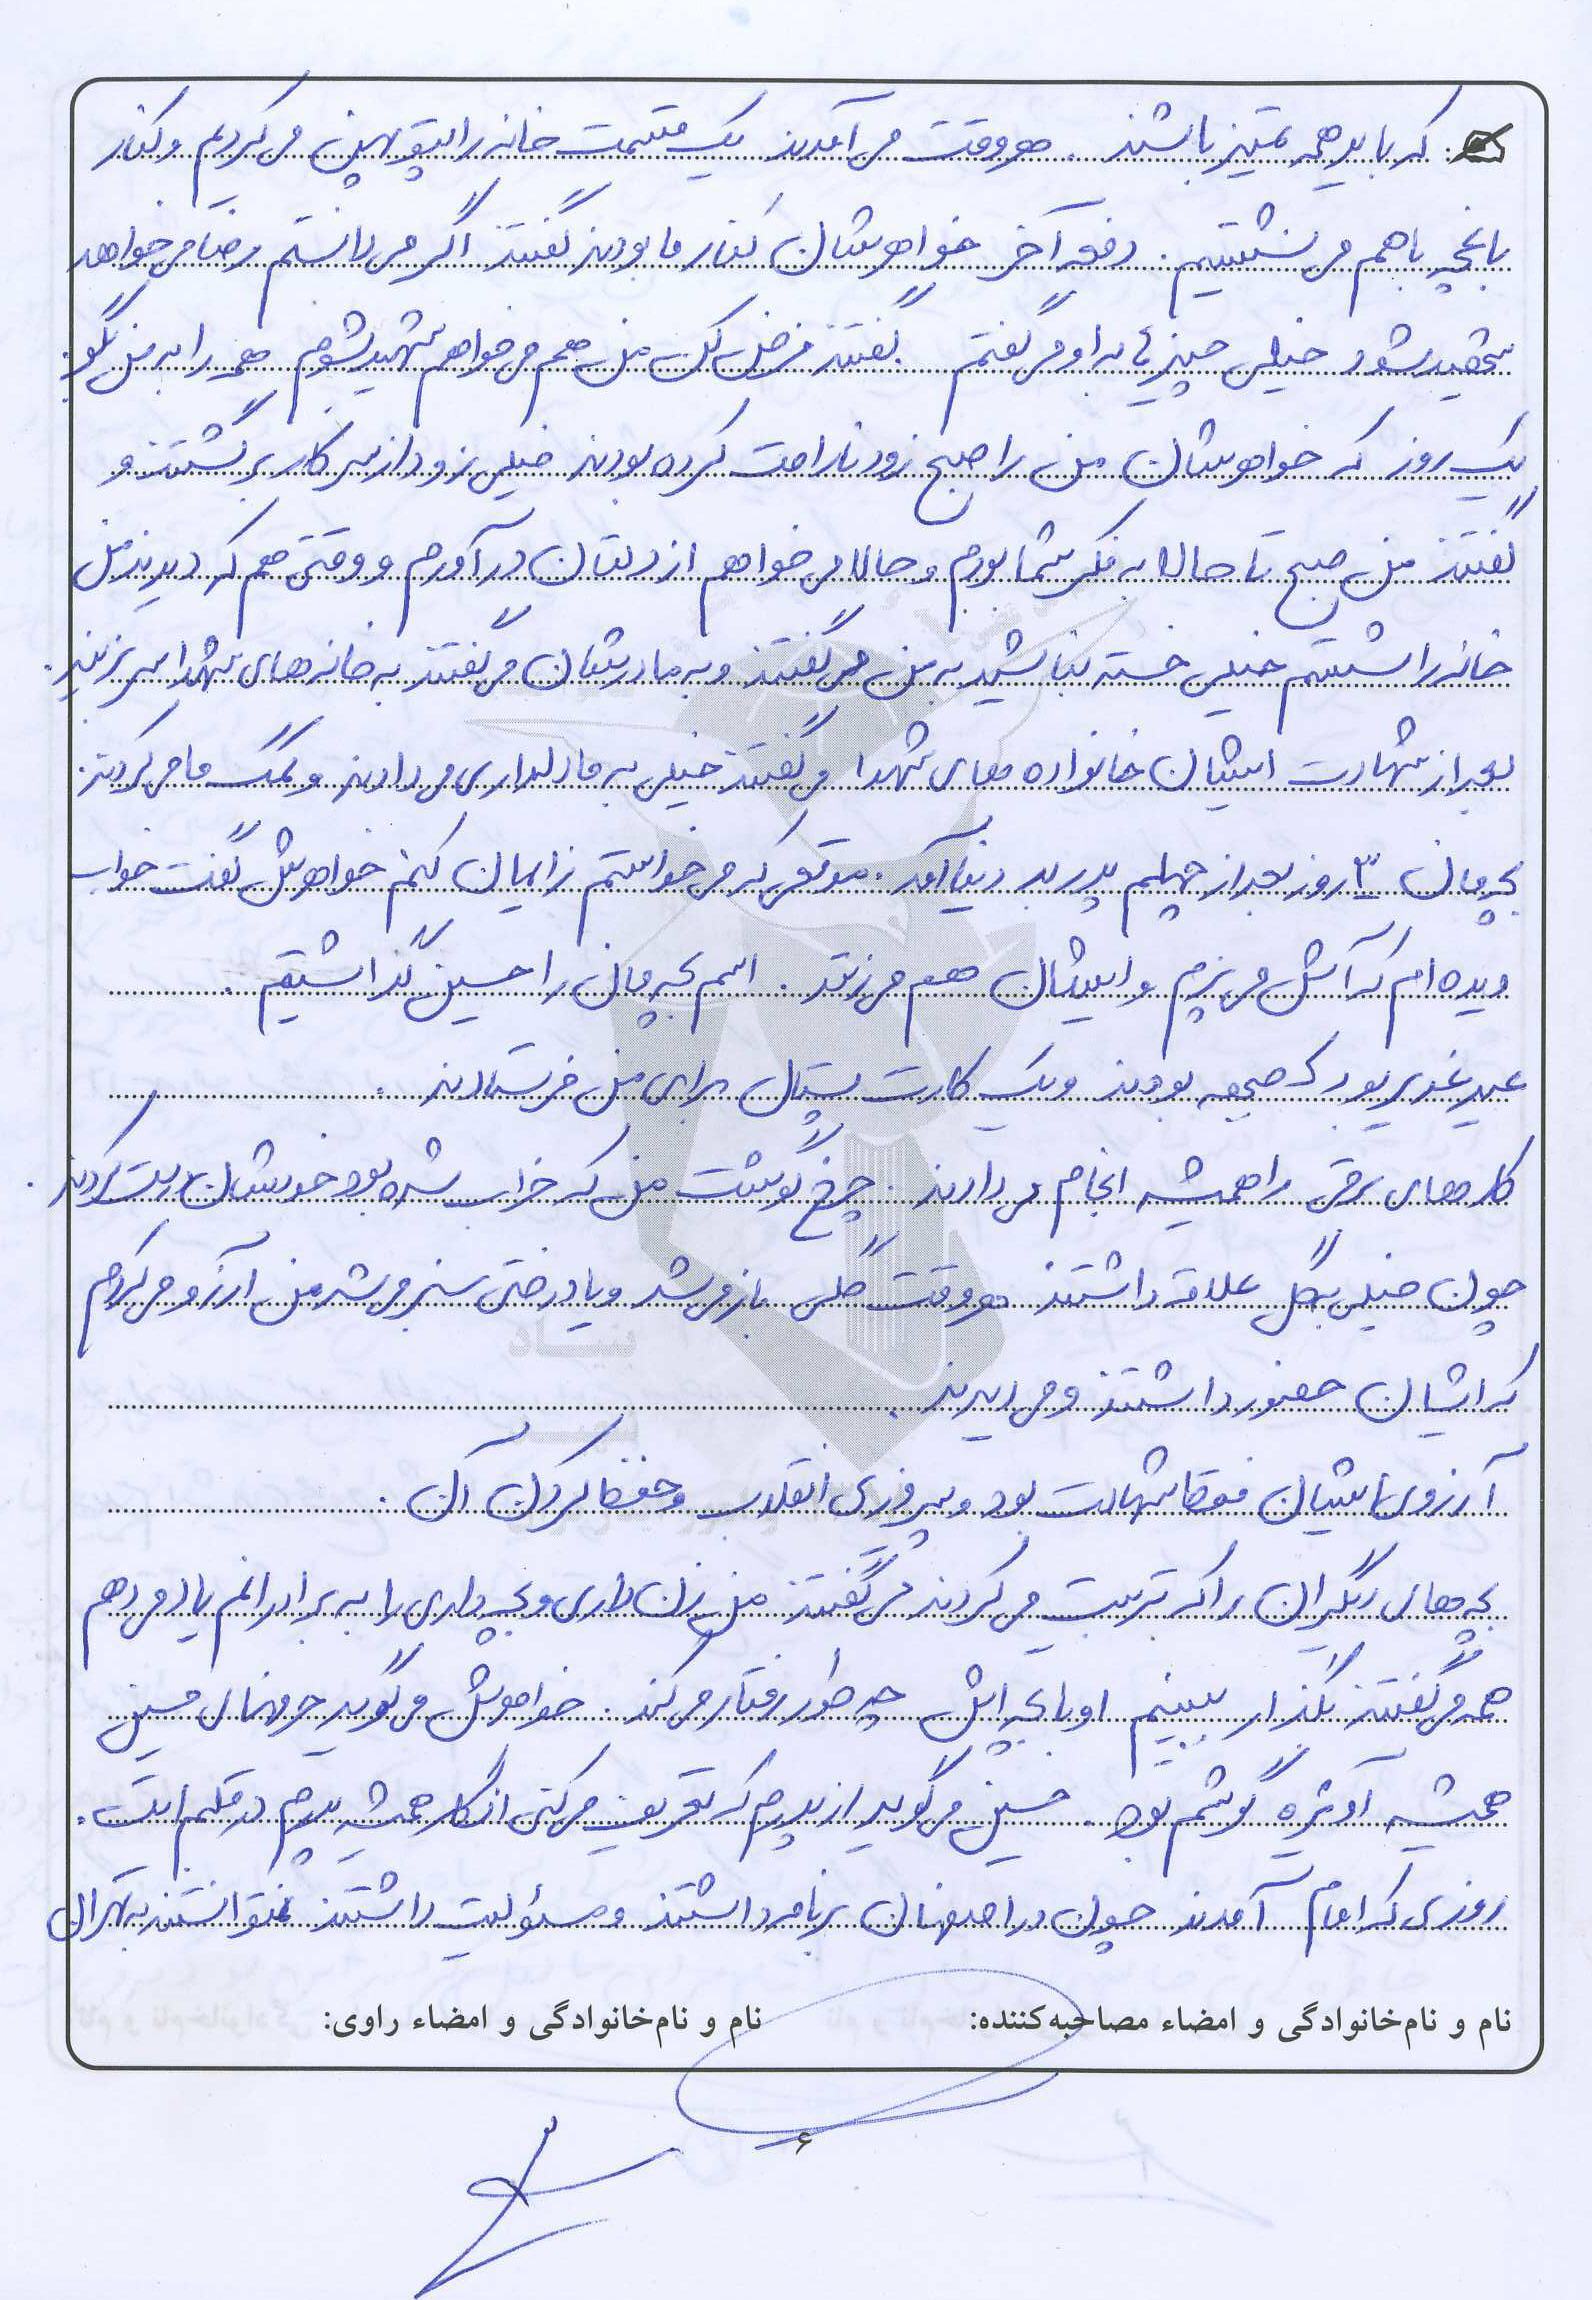 که باید همه تمیز باشند . هر وقت می آمدند یک قسمت خانه را پتو پهن می کردیم و کنار
باغچه باهم می نشستیم . دفعه آخر خواهرشان کنار ما بودند گفتند اگر می دانستم رضا می خواهد
شهید شود خیلی چیزها به او می گفتم . گفتند فرض کن من هم می خواهم شهید بشوم همه را به من بگو .
یک روز که خواهرشان من را صبح زود ناراحت کرده بودند خیلی زود از سر کار برگشتند و
گفتند من صبح تا حالا به فکر شما بودم و حالا می خواهم از دلتان در آورم و وقتی هم که دیدند من
خانه را شستم خیلی خسته نباشید به من می گفتند و به مادرشان می گفتند به خانه های شهدا سر بزنید .
بعد از شهادت ایشان خانواده های شهدا می گفتند خیلی به ما دلداری می دادند و کمک ما می کردند .
بچه مان ۳ روز بعد از چهلم پدر به دنیا آمد . موقعی که می خواستم زایمان کنم خواهرش گفت خواب
دیده ام که آش می پزم و ایشان هم می زند . اسم بچه مان را حسین گذاشتیم .
عید غدیر بود که جبهه بودند و یک کارت پستال برای من فرستادند .
کارهای برقی را همیشه انجام می دادند . چرخ گوشت من که خراب شده بود خودشان درست کردند .
چون خیلی به گل علاقه داشتند هر وقت گلی باز می شد و یا درختی سبز می شد من آرزو می کردم
که ایشان حضور داشتند و می دیدند .
آرزوی ایشان فقط شهادت بود و پیروزی انقلاب و حفظ کردن آن .
بچه های دیگران را که تربیت می کردند می گفتند من زن داری و بچه داری را به برادرانم یاد می دهم
همه می گفتند بگذار ببینیم او با بچه اش چه طور رفتار می کند . خواهرش می گوید حرفهای حسین
همیشه آویزه گوشم بود . حسین می گوید از پدرم که تعریف می کنی انگار همیشه پدرم در قلبم است .
روزی که امام آمدند چون در اصفهان برنامه داشتند و مسئولیت داشتند نتوانستند به تهران
نام و نام‌خانوادگی و امضاء مصاحبه‌کننده: نام و نام‌خانوادگی و امضاء راوی:
۶